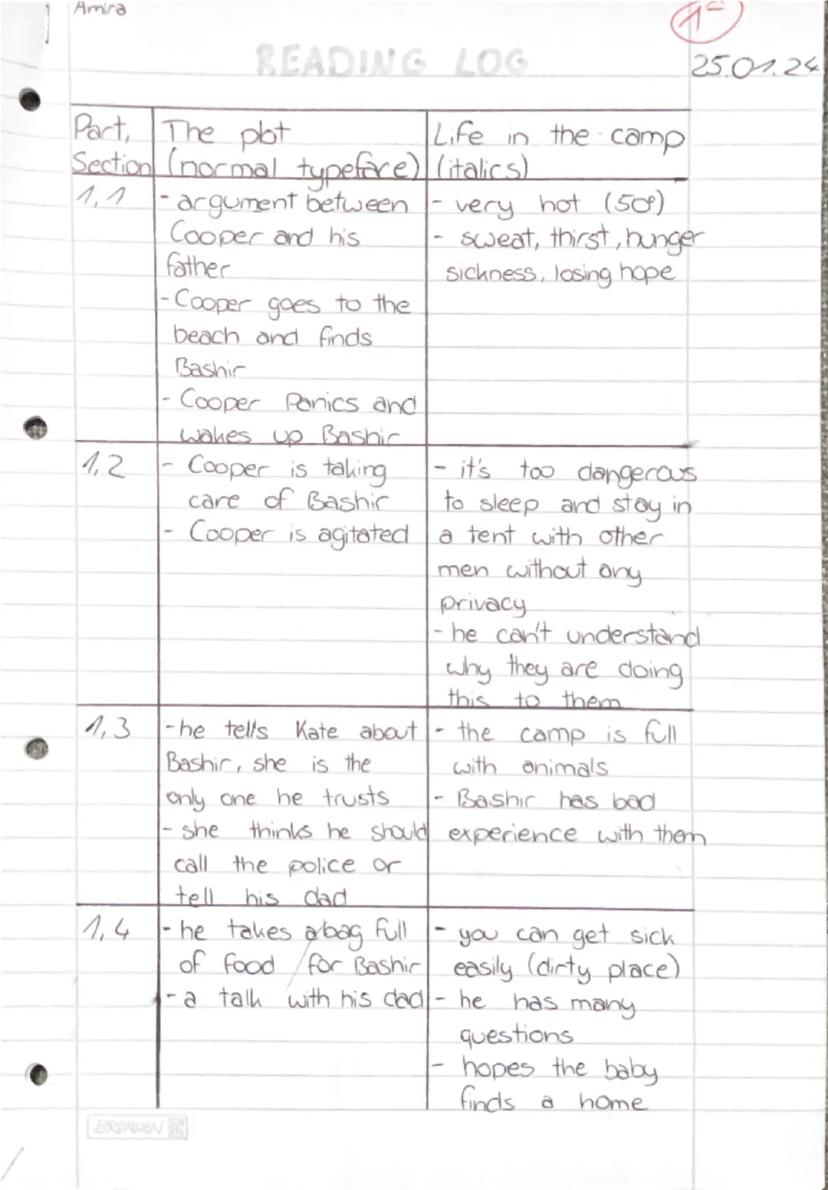 Amira
1-
READING LOG
25.01.24
Part, Section
The plot (normal typeface)
Life in the camp (italics)
1,1
- argument between
Cooper and his
father
- Cooper goes to the
beach and finds
Bashir
- Cooper Panics and
wakes up Bashir
- very hot (50°)
- sweat, thirst, hunger
sickness, losing hope
1,2
- Cooper is taking
care of Bashir
- Cooper is agitated
- it's too dangerous
to sleep and stay in
a tent with other
men without any
privacy
- he can't understand
why they are doing
this to them
1,3
- he tells Kate about
Bashir, she is the
only one he trusts
- she thinks he should
call the police or
tell his dad
- the camp is full
with animals
- Bashir has bad
experience with them
1,4
- he takes a bag full
of food for Bashir
- a talk with his dad
- you can get sick
easily (dirty place)
- he has many
questions
- hopes the baby
finds a home